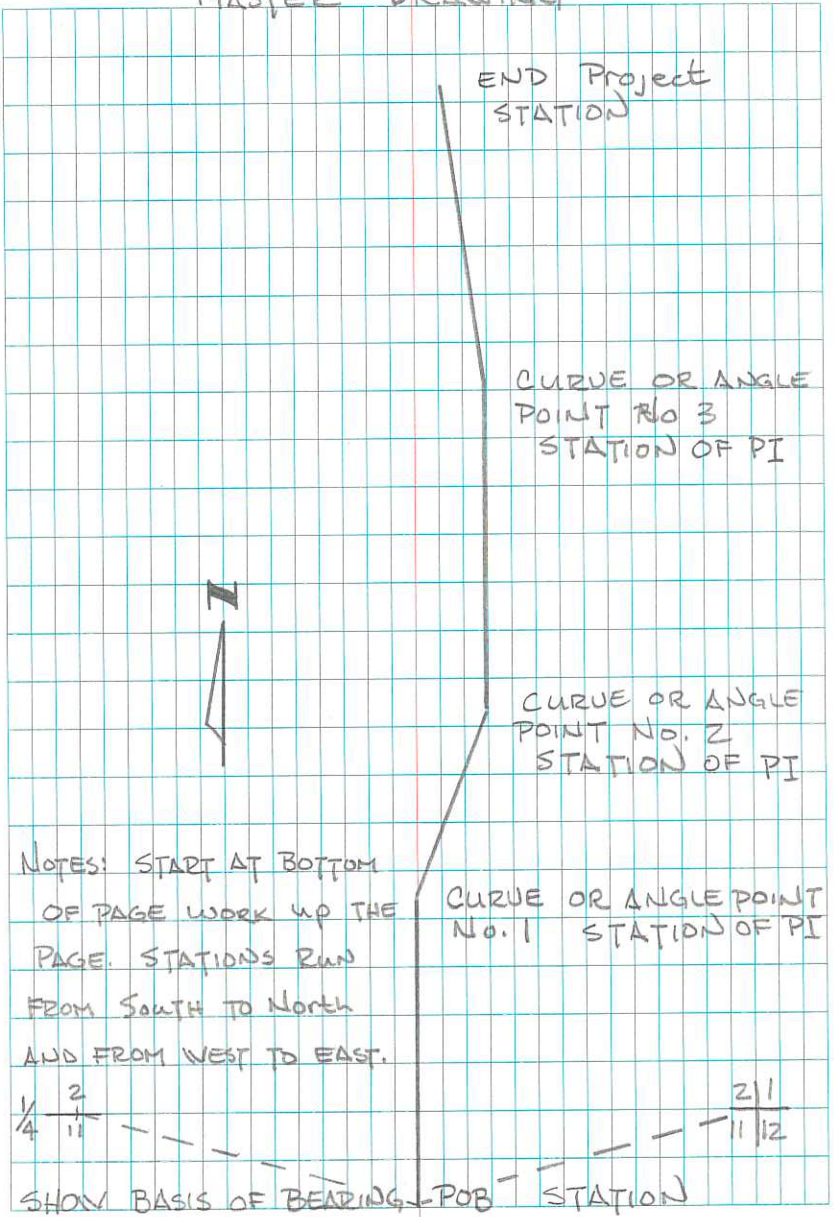 MASTER DRAWING
END Project
STATION
CURVE OR ANGLE
POINT No 3
STATION OF PI
N
CURVE OR ANGLE
POINT No. 2
STATION OF PI
NOTES: START AT BOTTOM
OF PAGE WORK UP THE
PAGE. STATIONS RUN
FROM SOUTH TO North
AND FROM WEST TO EAST.
CURVE OR ANGLE POINT
No. 1 STATION OF PI
1/4 2
11
2 1
11 12
SHOW BASIS OF BEARING POB STATION